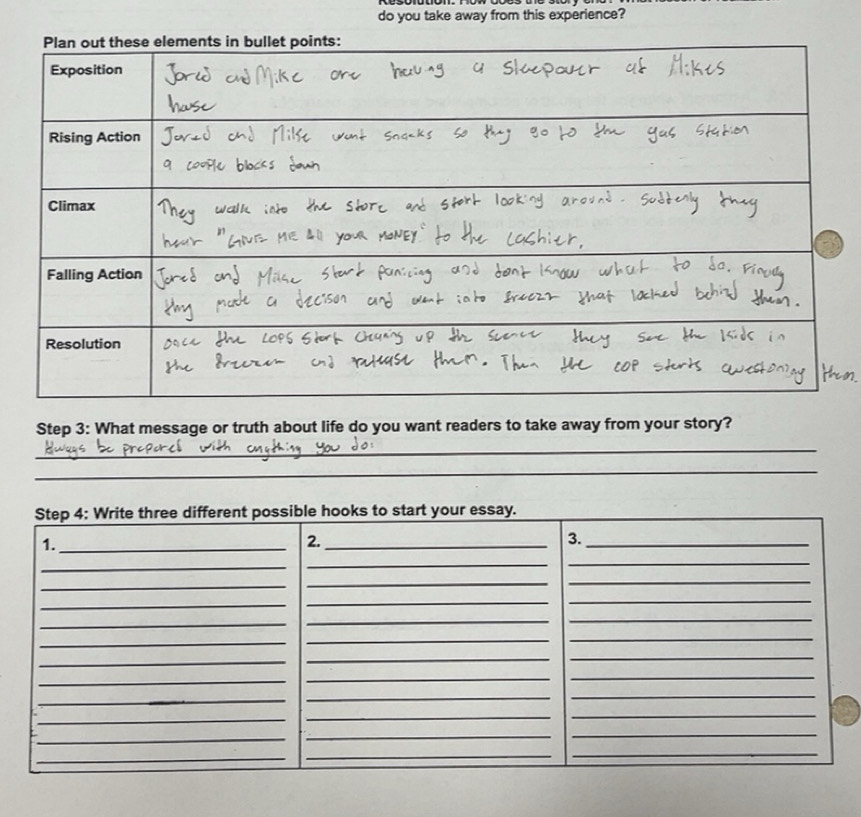 do you take away from this experience?
Plan out these elements in bullet points:
Exposition
Jored and Mike are having a sleepover at Mikes
house
Rising Action
Jored and Mike want snacks so they go to the gas station
a coople blocks down
Climax
They walk into the store and start looking around. Suddenly they
hear "GIVE ME All YOUR MONEY" to the cashier.
Falling Action
Jored and Mike start panicing and dont know what to do. Finally
they made a decison and went into freezr that locked behind them.
Resolution
once the cops start up the they see the kids in
the and release them. Then the cop starts questoning them.
Step 3: What message or truth about life do you want readers to take away from your story?
Always be prepared with anything you do.
Step 4: Write three different possible hooks to start your essay.
1.
2.
3.